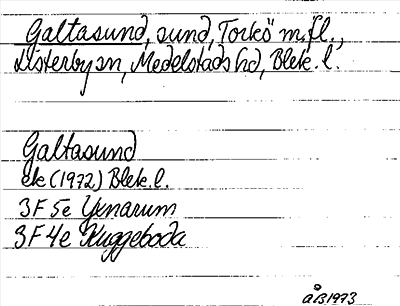 Galtasund, sund, Torkö m.fl.,
Listerby sn, Medelstads hd, Blek. l.
Galtasund
ek (1972) Blek. l.
3F 5e Yenarum
3F 4e Kuggeboda
ÅB 1973